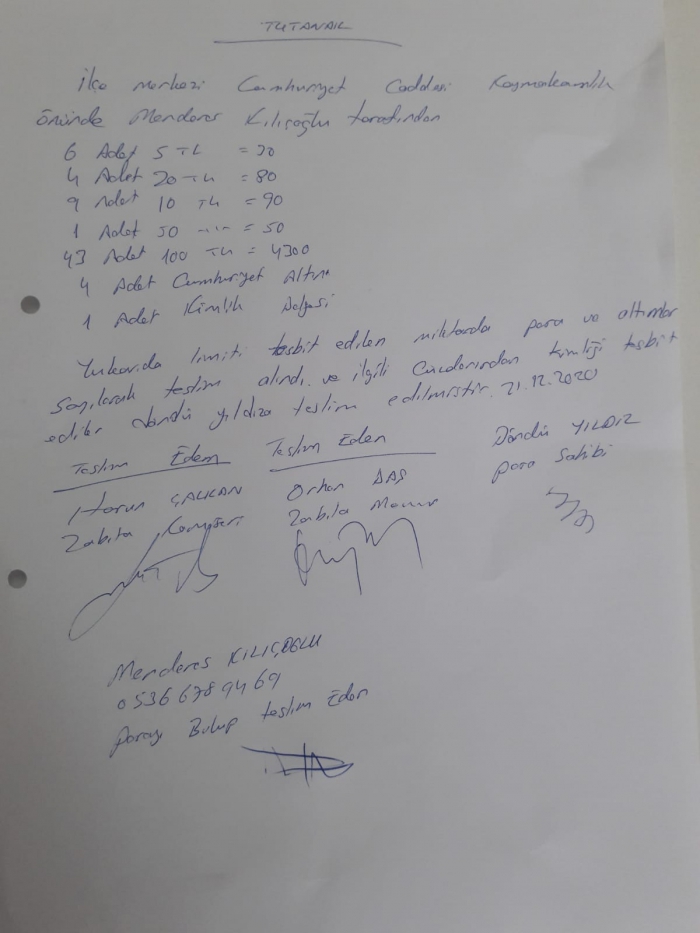 TUTANAK
İlçe merkezi Cumhuriyet Caddesi Kaymakamlık
önünde Menderes Kılıçoğlu tarafından
6 Adet 5 TL = 30
4 Adet 20 TL = 80
9 Adet 10 TL = 90
1 Adet 50 --- = 50
43 Adet 100 TL = 4300
4 Adet Cumhuriyet Altını
1 Adet Kimlik
Yukarıda limiti tesbit edilen miktarda para ve altınlar
sayılarak teslim alındı. ve ilgili kimliği tesbit
edilen döndü yıldıza teslim edilmiştir. 21.12.2020
Teslim Eden Teslim Eden Döndü YILDIZ
Harun ÇALIKAN Orhan DAŞ para Sahibi
Zabıta Komiseri Zabıta Memuru
Menderes KILIÇOĞLU
0536 678 94 69
Parayı Bulup teslim Eden